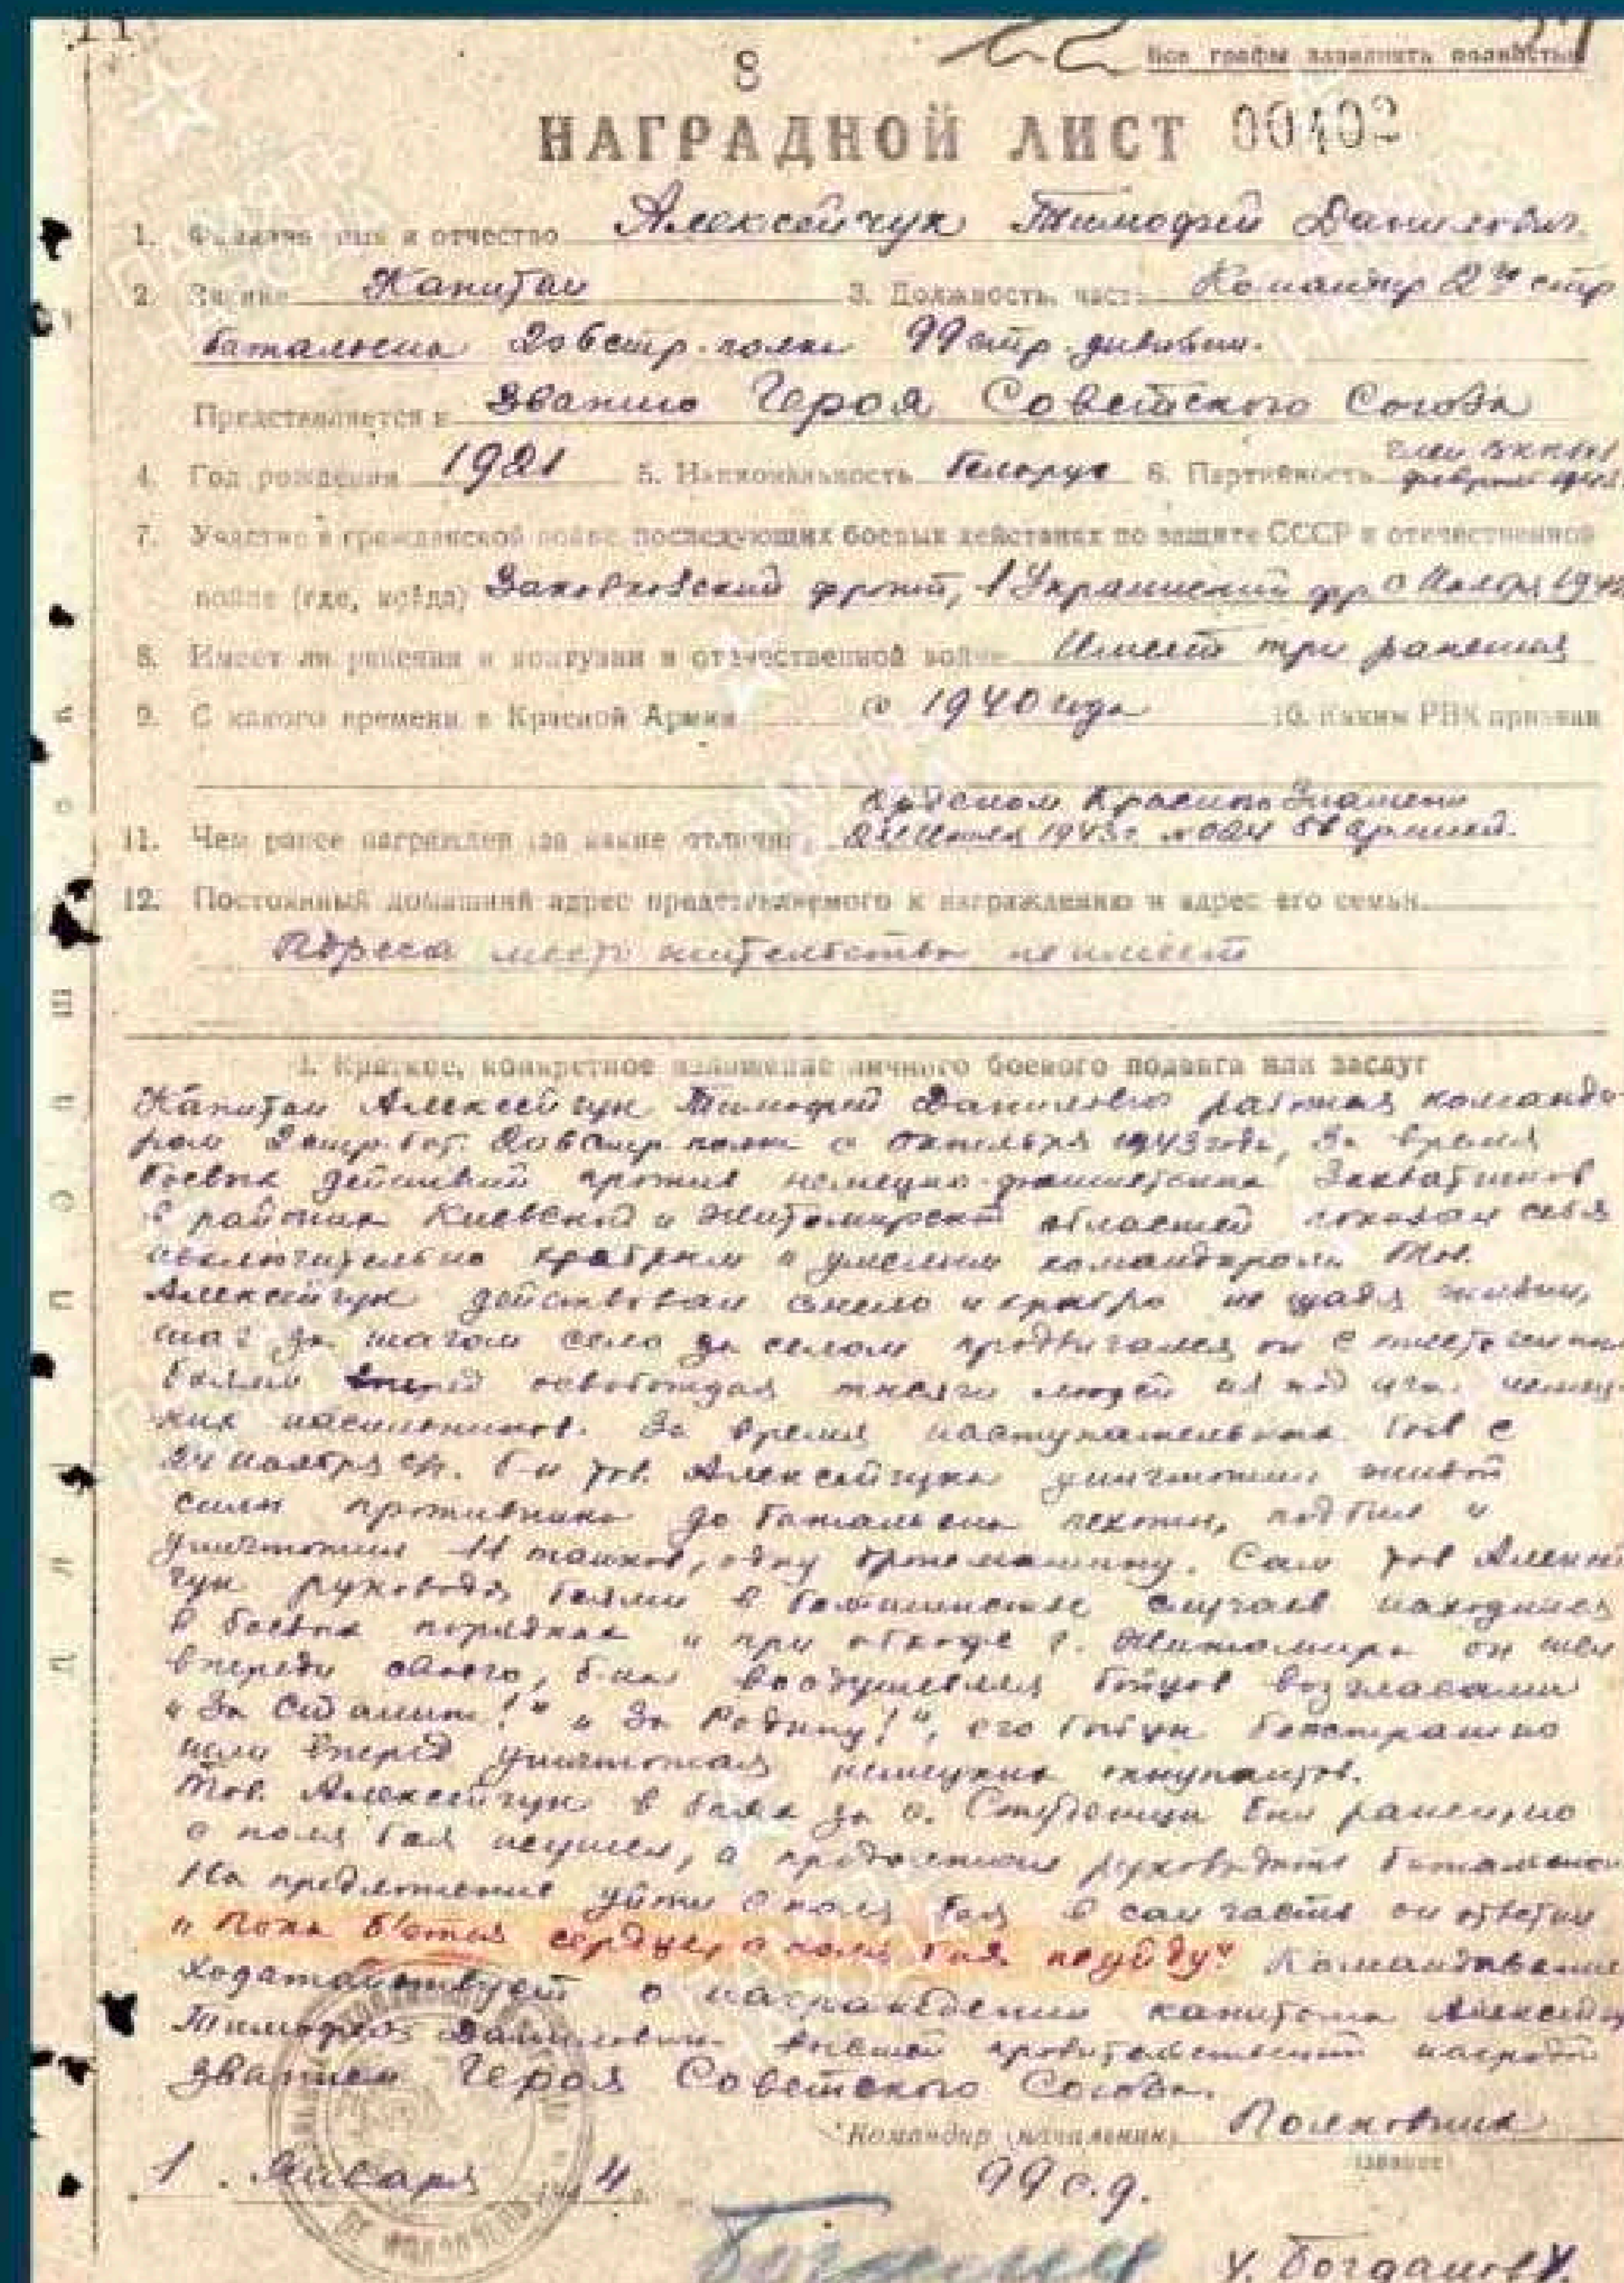 8
Все графы заполнять полностью
НАГРАДНОЙ ЛИСТ 00402
1. Фамилия имя и отчество Алексейчук Тимофей Данилович
2. Звание Капитан 3. Должность, часть Командир 2го стр
батальона 206 стр. полка 99 стр. дивизии.
Представляется к Званию Героя Советского Союза
4. Год рождения 1921 5. Национальность белорус 6. Партийность член ВКП(б)
7. Участие в гражданской войне последующих боевых действиях по защите СССР и отечественной
войне (где, когда) фронт, 1 Украинский фр. с
8. Имеет ли ранения и контузии в отечественной войне Имеет три ранения
9. С какого времени в Красной Армии с 1940 года 10. Каким РВК призван
Орденом Красного Знамени
11. Чем ранее награжден (за какие отличия) 1943 г. армией.
12. Постоянный домашний адрес представляемого к награждению и адрес его семьи.
Адреса место жительства не имеет
1. Краткое, конкретное изложение личного боевого подвига или заслуг
Капитан Алексейчук Тимофей Данилович работая команди-
ром 2 стр. бат. 206 стр. полка с октября 1943 года, за время
боевых действий против немецко-фашистских захватчиков
в районах Киевской и Житомирской областей показал себя
исключительно храбрым и умелым командиром. Тов.
Алексейчук действовал смело и храбро не щадя жизни,
шаг за шагом село за селом продвигался он с
боями вперед освобождая тысячи людей из под ига немец-
ких насильников. За время наступательных боев с
24 ноября б-н тов. Алексейчука уничтожил живой
силы противника до батальона пехоты, подбил и
уничтожил 11 танков, одну бронемашину. Сам тов Алексей
чук руководя боями в большинстве случаев находился
в боевых порядках и при обходе г. Житомира он шел
впереди своего б-на воодушевляя бойцов возгласами
"За Сталина!" "За Родину!", его бойцы бесстрашно
шли вперед уничтожая немецких оккупантов.
Тов. Алексейчук в боях за с. Студеница был ранен, но
с поля боя не ушел, а продолжал руководить батальоном
На предложение уйти с поля боя в сан часть он ответил
"Пока б'ется сердце, с поля боя не уйду" Командование
ходатайствует о награждении капитана Алексейчук
Тимофея Даниловича высшей правительственной наградой
званием Героя Советского Союза.
Командир (начальник) Полковник
(звание)
1 Января 1944 г. 99 с.д.
Богданов